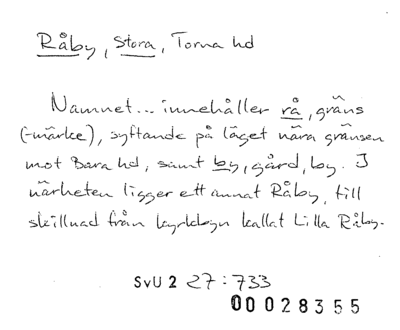 Råby, Stora, Torna hd
Namnet... innehåller rå, gräns
(-märke), syftande på läget nära gränsen
mot Bara hd, samt by, gård, by. I
närheten ligger ett annat Råby, till
skillnad från kyrkbyn kallat Lilla Råby.
SvU 2 27:733
00028355